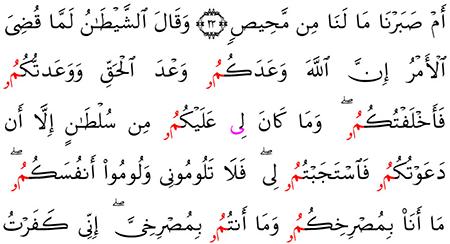 أَمْ صَبَرْنَا مَا لَنَا مِن مَّحِيصٖ ۝٢٣ وَقَالَ ٱلشَّيْطَٰنُ لَمَّا قُضِيَ
ٱلْأَمْرُ إِنَّ ٱللَّهَ وَعَدَكُمُۥ وَعْدَ ٱلْحَقِّ وَوَعَدتُّكُمُۥ
فَأَخْلَفْتُكُمُۥۖ وَمَا كَانَ لِي عَلَيْكُمُۥ مِن سُلْطَٰنٍ إِلَّا أَن
دَعَوْتُكُمُۥ فَٱسْتَجَبْتُمُۥ لِيۖ فَلَا تَلُومُونِي وَلُومُوا۟ أَنفُسَكُمُۥۖ
مَا أَنَا۠ بِمُصْرِخِكُمُۥ وَمَا أَنتُمُۥ بِمُصْرِخِيَّۖ إِنِّي كَفَرْتُ